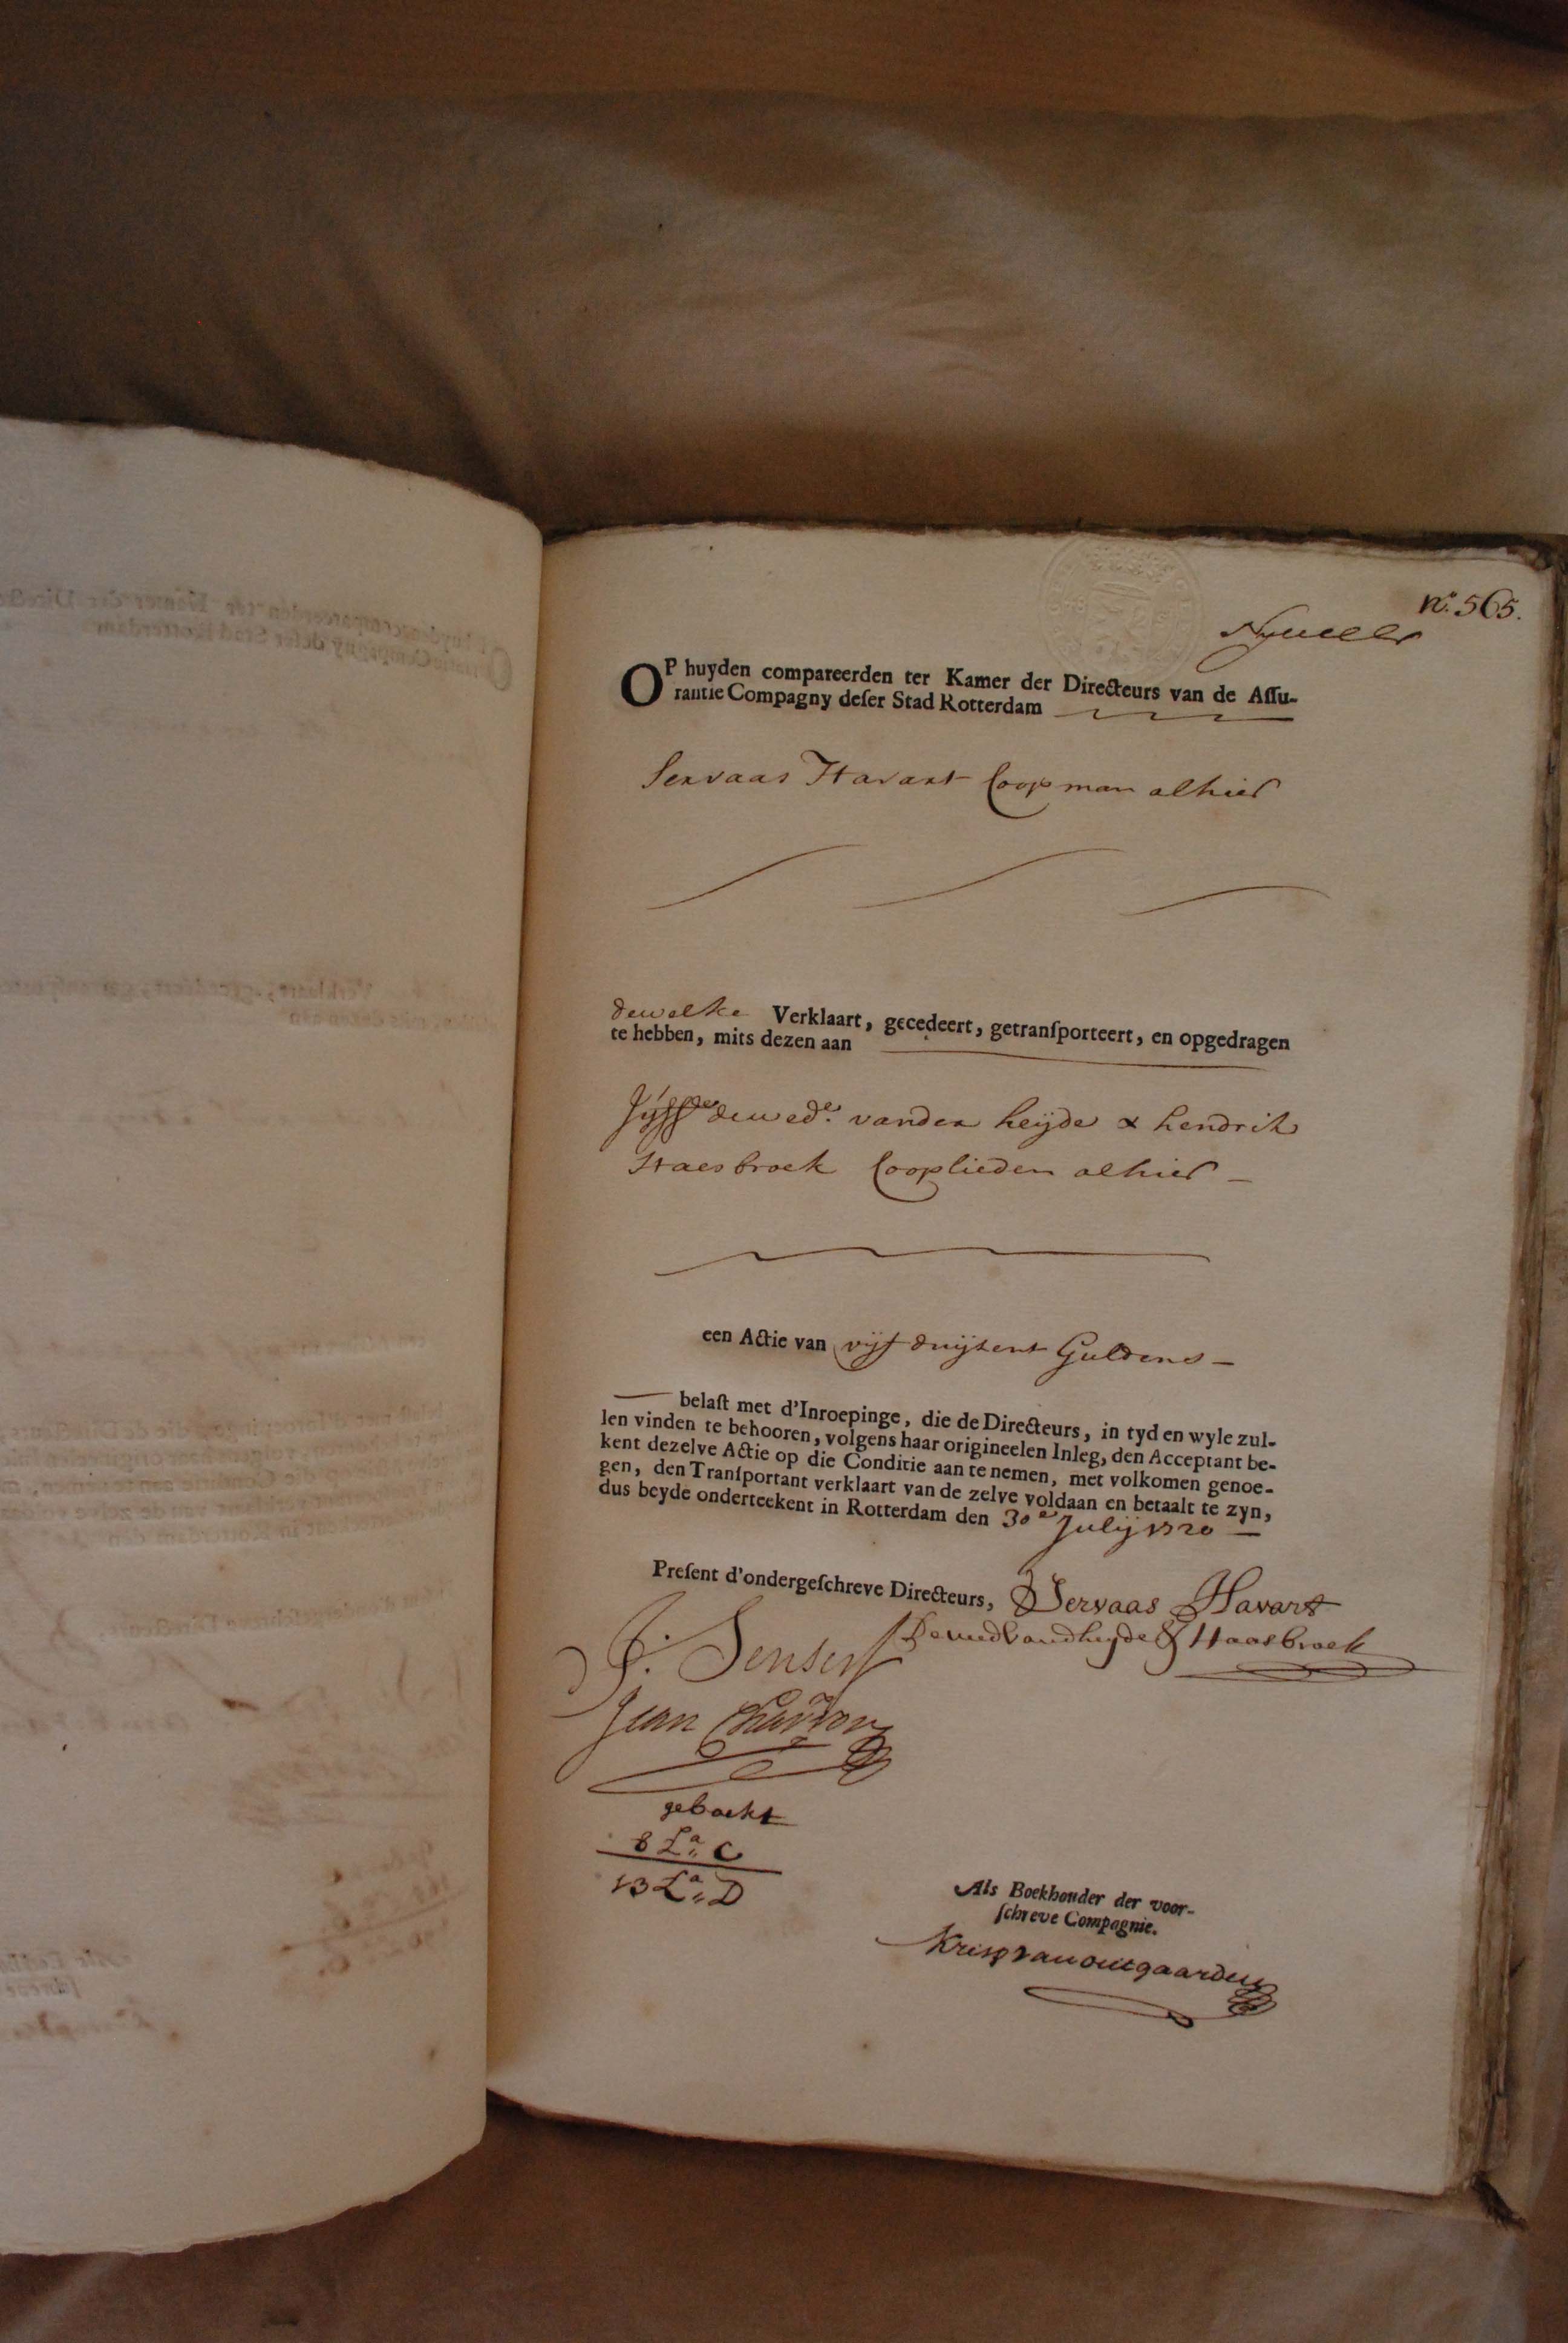 nº. 565.
OP huyden compareerden ter Kamer der Directeurs van de Aſſu-
rantie Compagny deſer Stad Rotterdam
Servaas Havart Coopman alhier
dewelke Verklaart, gecedeert, getranſporteert, en opgedragen
te hebben, mits dezen aan
de wedᵉ. vander heijde & hendrik
Haesbroek Cooplieden alhier
een Actie van vijf duijsent Guldens
belaſt met d'Inroepinge, die de Directeurs, in tyd en wyle zul-
len vinden te behooren, volgens haar origineelen Inleg, den Acceptant be-
kent dezelve Actie op die Conditie aan te nemen, met volkomen genoe-
gen, den Tranſportant verklaart van de zelve voldaan en betaalt te zyn,
dus beyde onderteekent in Rotterdam den 30ᵉ Julij 1720
Preſent d'ondergeſchreve Directeurs, Servaas Havart
J. Senserf De wed vandheyde & Haasbroek
Jean Chardon
geboekt
8 Lª C
13 Lª D
Als Boekhouder der voor-
ſchreve Compagnie.
Krisp van outgaarden